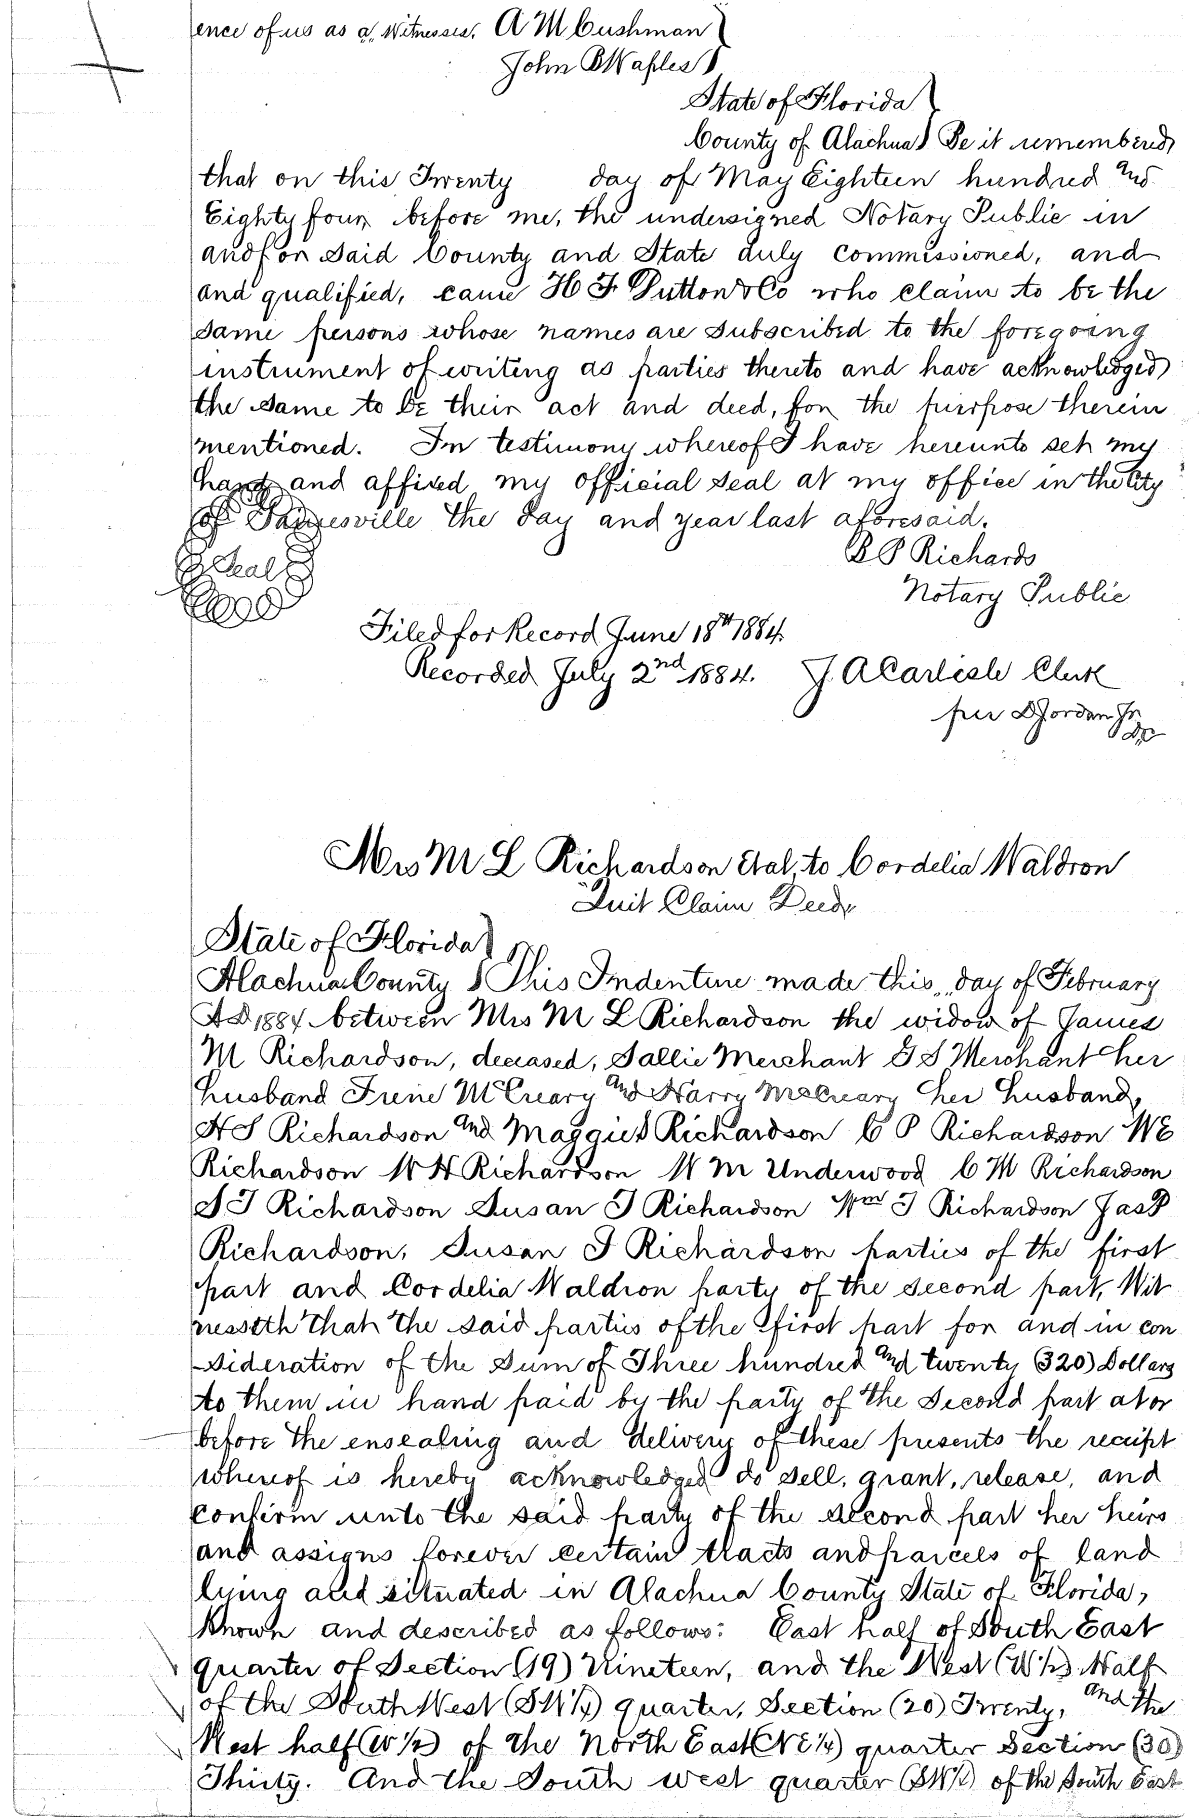 ence of us as a, Witnesses, A M Cushman
John B Waples
State of Florida
County of Alachua Be it remembered
that on this Twenty day of May Eighteen hundred and
Eighty four before me, the undersigned Notary Public in
and for Said County and State duly commissioned, and
and qualified, came H F Dutton & Co who claim to be the
same persons whose names are Subscribed to the foregoing
instrument of writing as parties thereto and have acknowledged
the same to be their act and deed, for the purpose therein
mentioned. In testimony whereof I have hereunto set my
hand and affixed my official seal at my office in the City
of Gainesville the day and year last aforesaid.
Seal
B P Richards
Notary Public
Filed for Record June 18th 1884
Recorded July 2nd 1884. J. A Carlisle Clerk
per D Jordan Jr
DC
Mrs M L Richardson Etal, to Cordelia Waldron
Quit Claim Deed
State of Florida
Alachua County This Indenture made this " day of February
A D 1884 between Mrs M L Richardson the widow of James
M Richardson, deceased, Sallie Merchant G S Merchant her
husband Irene McCreary and Harry McCreary her husband,
H S Richardson and Maggie S Richardson C P Richardson W E
Richardson W H Richardson W M Underwood C M Richardson
S J Richardson Susan J Richardson Wm J Richardson Jas P
Richardson, Susan J Richardson parties of the first
part and Cordelia Waldron party of the second part, Wit
nesseth that the said parties of the first part for and in con
sideration of the Sum of Three hundred and twenty (320) Dollars
to them in hand paid by the party of the Second part at or
before the ensealing and delivery of these presents the receipt
whereof is hereby acknowledged do sell, grant, release, and
confirm unto the said party of the second part her heirs
and assigns forever certain tracts and parcels of land
lying and situated in Alachua County State of Florida,
Known and described as follows: East half of South East
quarter of Section (19) Nineteen, and the West (W ½) Half
of the South West (SW ¼) quarter, Section (20) Twenty, and the
West half (W ½) of the North East (NE ¼) quarter Section (30)
Thirty. And the South west quarter (SW ¼) of the South East